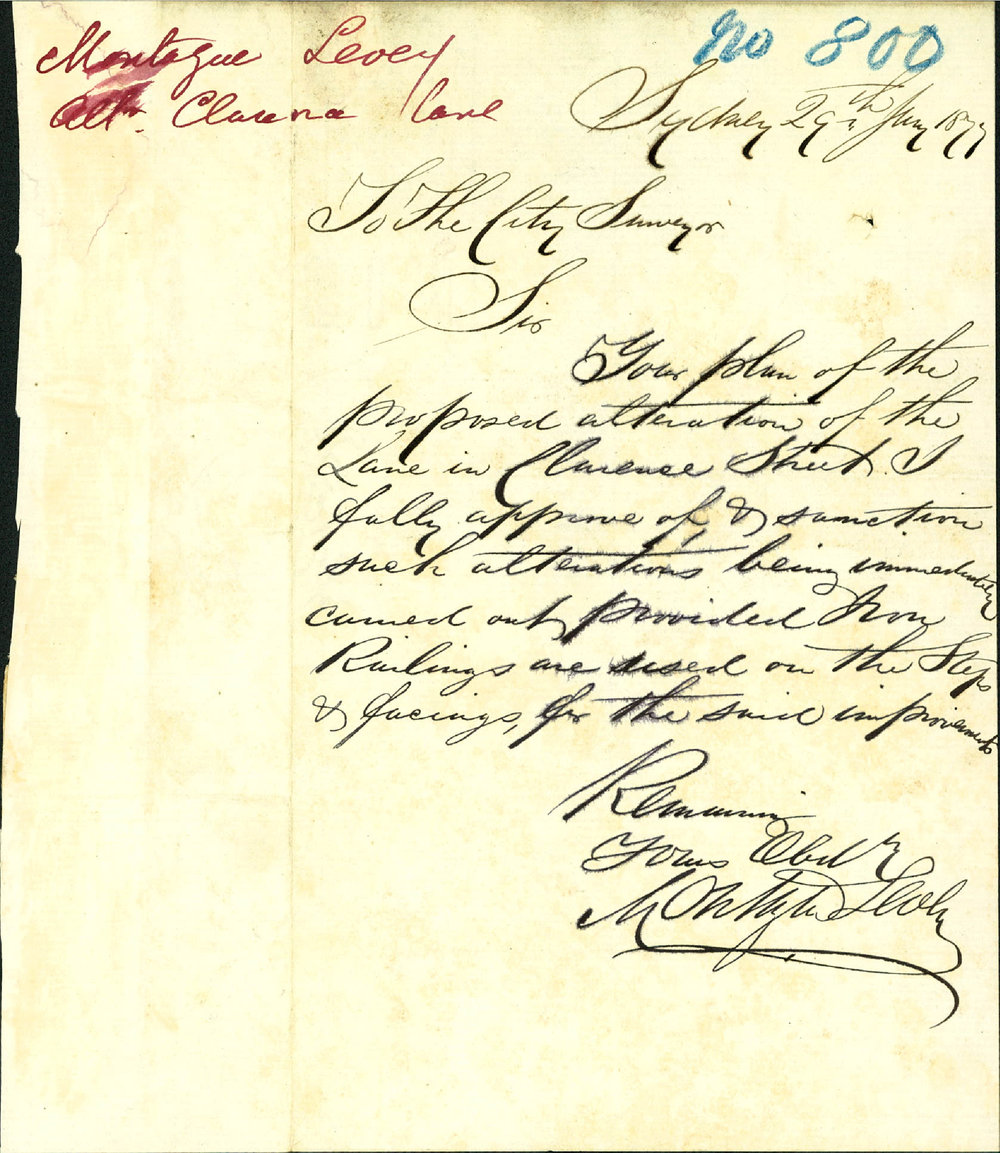 Montague Levey
Altn. Clarence Lane
No 800
Sydney 29th Jany 1877
To The City Surveyor
Sir
Your plan of the
proposed alteration of the
Lane in Clarence Street. I
fully approve of, & sanction
such alterations being immediately
carried out, provided Iron
Railings are used on the Steps
& facings, for the said improvements
Remaining
Yours Obdt
Montague Levey